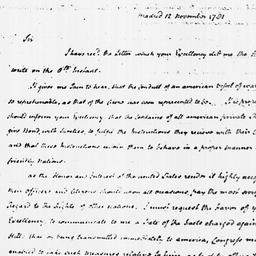 Madrid 12 November 1781
Sir
I have recd. the Letter which your Excellency did me the
write on the 8th Instant.
It gives me Pain to hear, that the conduct of an american Vessel of war
so reprehensible, as that of the Crew has been represented to be. It is proper
should inform your Excellency that the Captains of all american private
give Bond, with Sureties, to obey the Instructions they receive with their
and that these Instructions enjoin them to behave in a proper manner
friendly Nations.
as the Honor and Interest of the united States render it highly
their officers and Citizens should upon all occasions, pay the most
Regard to the Rights of other Nations. I must request the Favor of
Excellency, to communicate to me a State of the Facts charged
that on being transmitted immediately to america, Congress
enabled to take such measures relative to